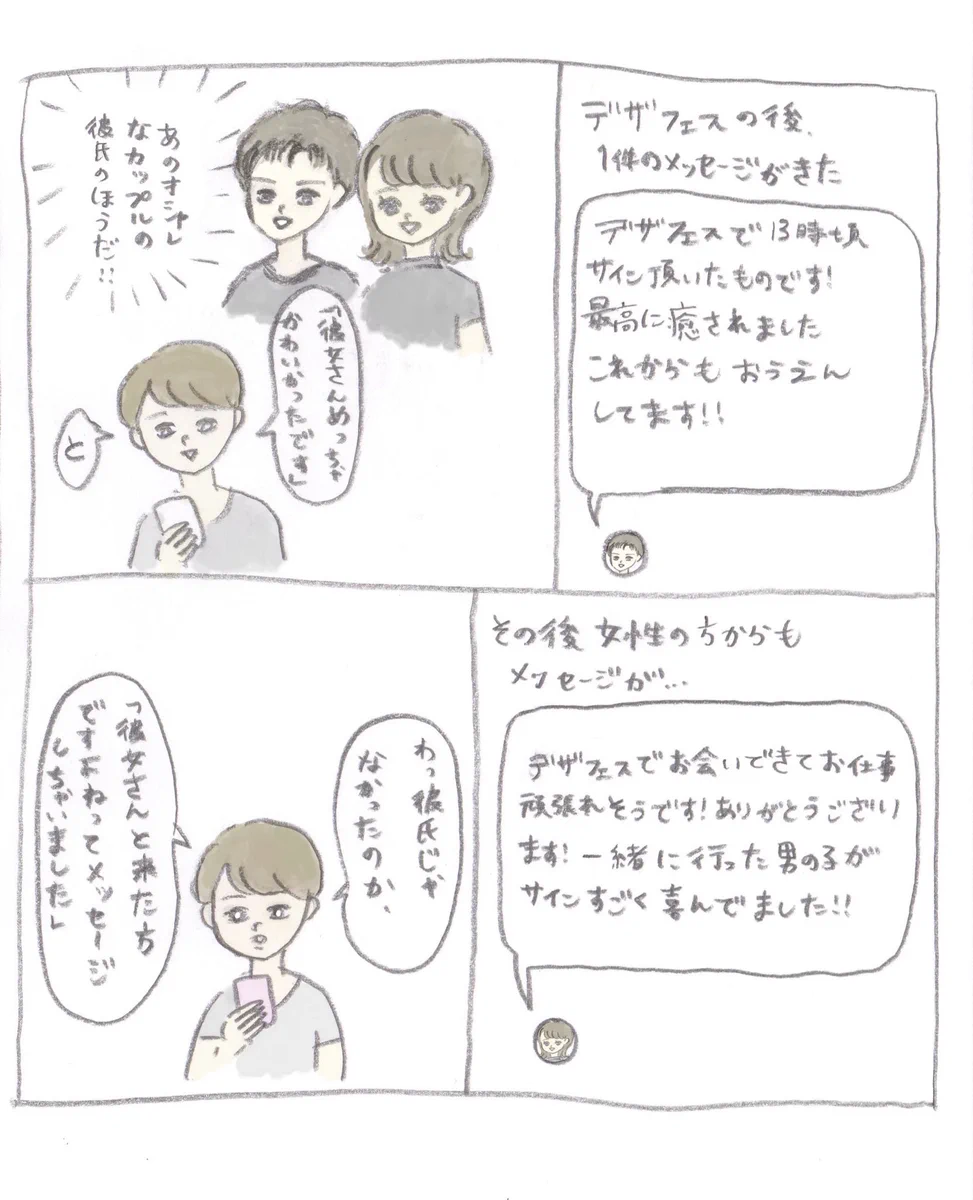 デザフェスの後、
1件のメッセージがきた
デザフェスで13時頃
サイン頂いたものです!
最高に癒されました
これからもおうえん
してます!!
あのオシャレ
なカップルの
彼氏のほうだ!!
「彼女さんめっちゃ
かわいかったです」
と
その後女性の方からも
メッセージが...
デザフェスでお会いできてお仕事
頑張れそうです!ありがとうござい
ます!一緒に行った男の子が
サインすごく喜んでました!!
わっ彼氏じゃ
なかったのか、
「彼女さんと来た方
ですよねってメッセージ
しちゃいました」